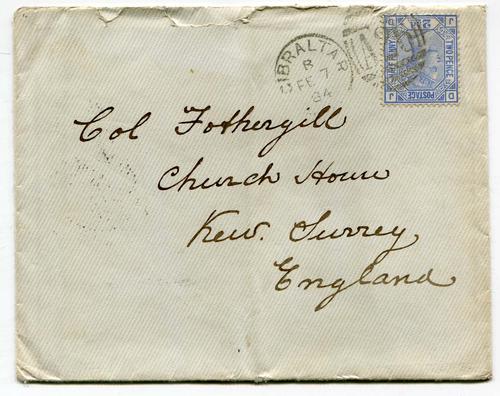 GIBRALTAR
B
FE 7
84
POSTAGE
TWO PENCE
Col Fothergill
Church House
Kew. Surrey
England